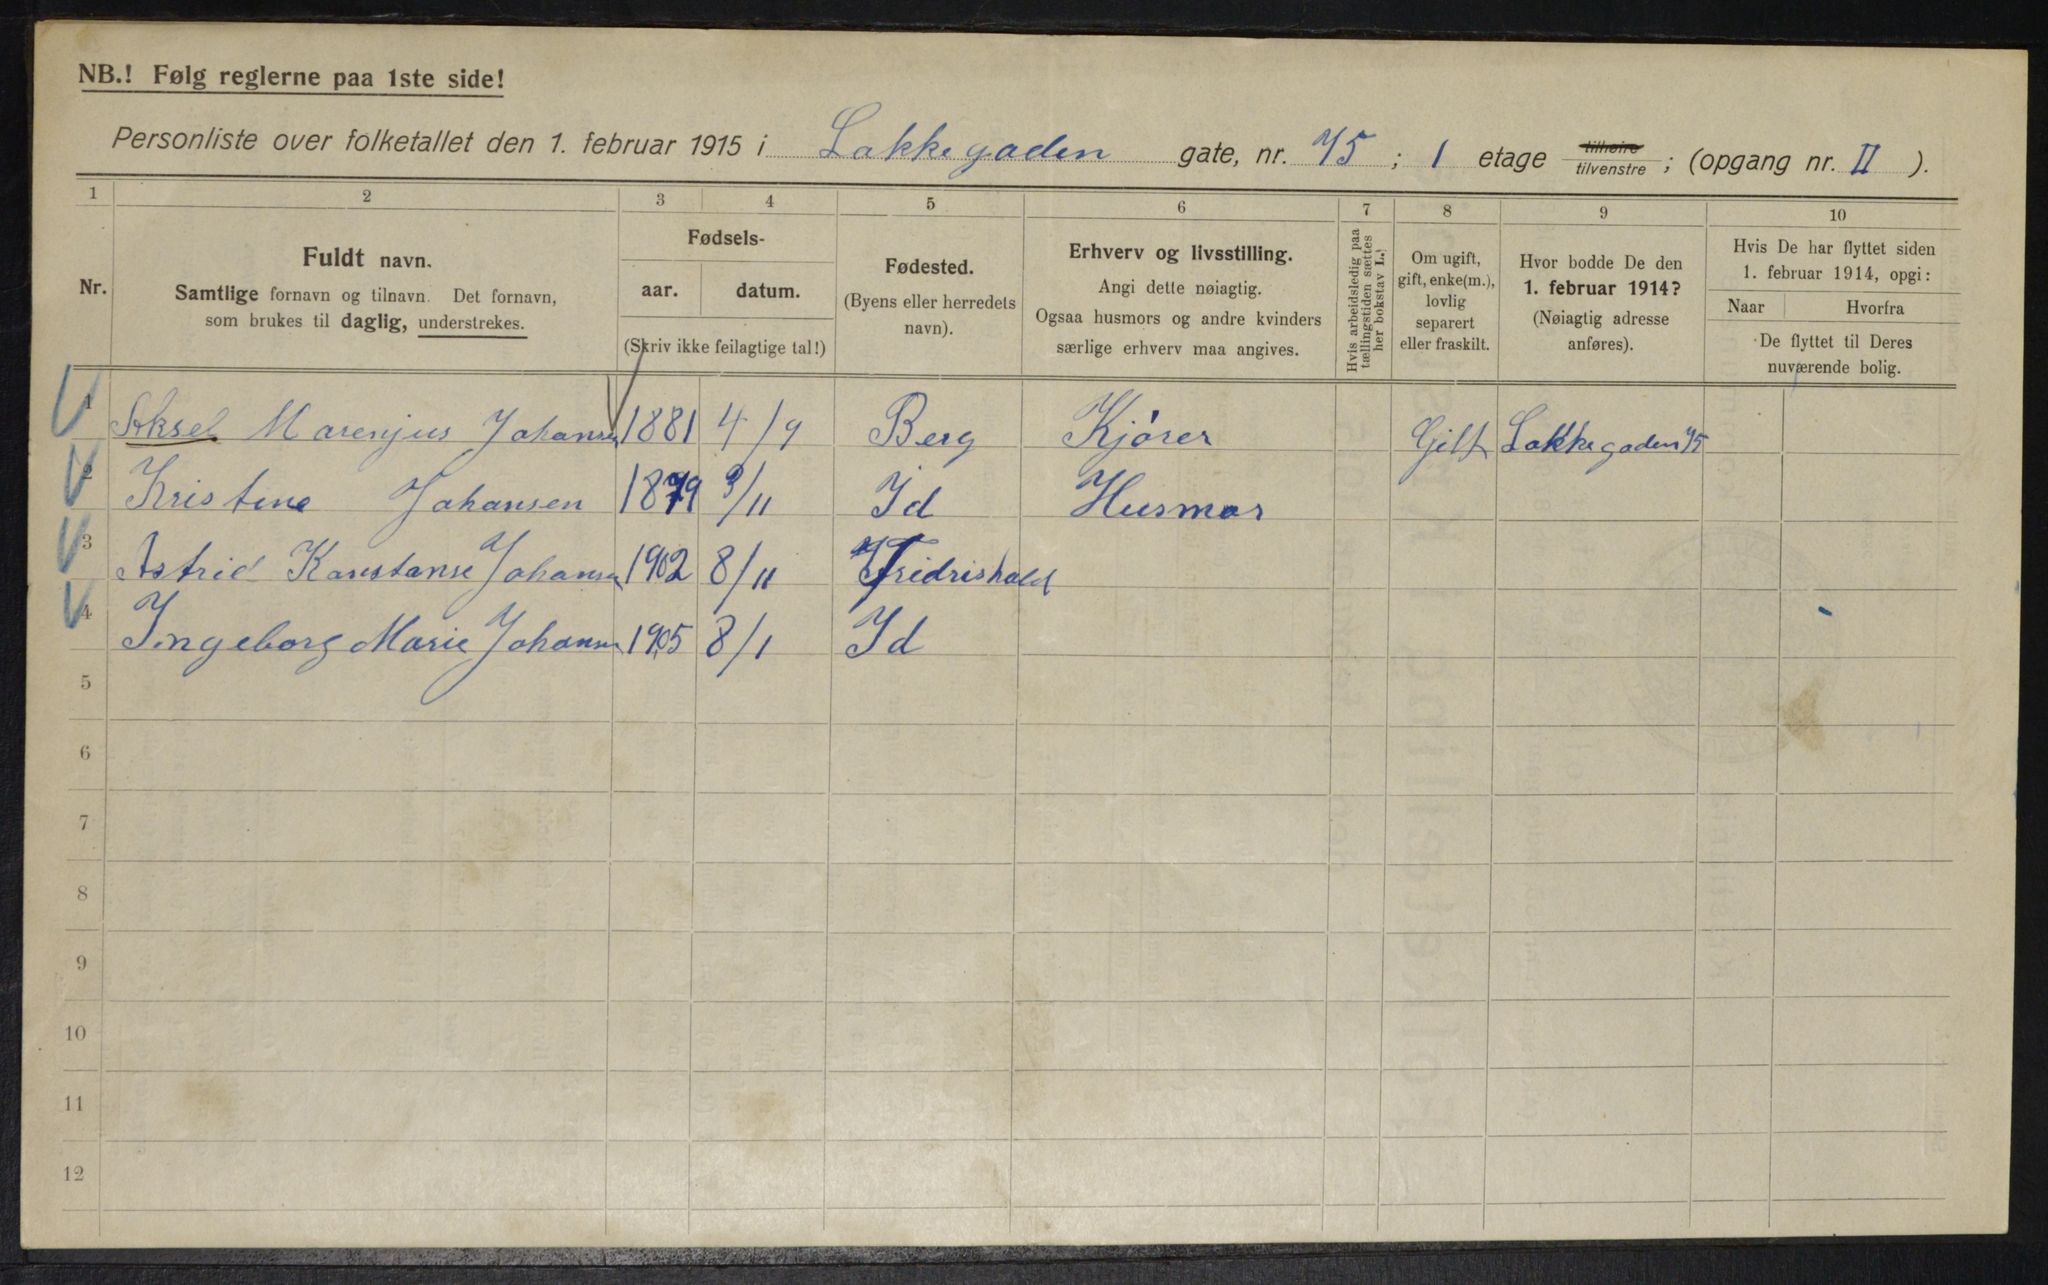 NB.! Følg reglerne paa 1ste side!
Personliste over folketallet den 1. februar 1915 i Lakkegaden gate, nr. 75; 1 etage tilhøire tilvenstre; (opgang nr. II).
1 2 3 4 5 6 7 8 9 10
Nr.
Fuldt navn.
Samtlige fornavn og tilnavn. Det fornavn,
som brukes til daglig, understrekes.
Fødsels-
aar. datum.
(Skriv ikke feilagtige tal!)
Fødested.
(Byens eller herredets
navn).
Erhverv og livsstilling.
Angi dette nøiagtig.
Ogsaa husmors og andre kvinders
særlige erhverv maa angives.
Hvis arbeidsledig paa
tællingstiden sættes
her bokstav L.
Om ugift,
gift, enke(m.),
lovlig
separert
eller fraskilt.
Hvor bodde De den
1. februar 1914?
(Nøiagtig adresse
anføres).
Hvis De har flyttet siden
1. februar 1914, opgi:
Naar Hvorfra
De flyttet til Deres
nuværende bolig.
1 Aksel Marenjus Johansen 1881 4/9 Berg Kjører Gift Lakkegaden 75
2 Kristine Johansen 1879 9/11 Id Husmor
3 Astrid Konstanse Johansen 1902 8/11 Fridrishald
4 Ingeborg Marie Johansen 1905 8/1 Id
5
6
7
8
9
10
11
12